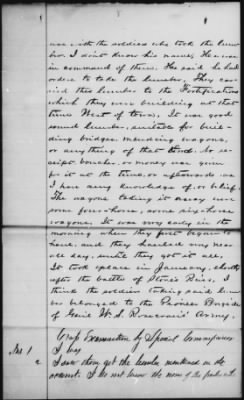 was with the soldiers who took the lum-
ber. I don't know his name. He was
in command of them. He said he had
orders to take the lumber. They car-
ried this lumber to the Fortifications
which they were building at that
time West of town. It was good
sound lumber, suitable for buil-
ding bridges, mending wagons,
or any thing of that kind. No re-
ceipt, voucher, or money was given
for it at the time, or afterwards as
I have any knowledge of, or belief.
The wagons taking it away were
some four-horse, some six-horse
wagons. It was very early in the
morning when they first began to
haul, and they hauled very near
all day, until they got it all.
It took place in January, shortly
after the battle of Stone's River. I
think the soldiers taking said lum-
ber belonged to the Pioneer Brigade
of Genl W. S. Rosecrans' Army.
Crop Examination by Special Commissioner
Int. 1
I saw them get the lumber mentioned in the
account. I do not know the name of the